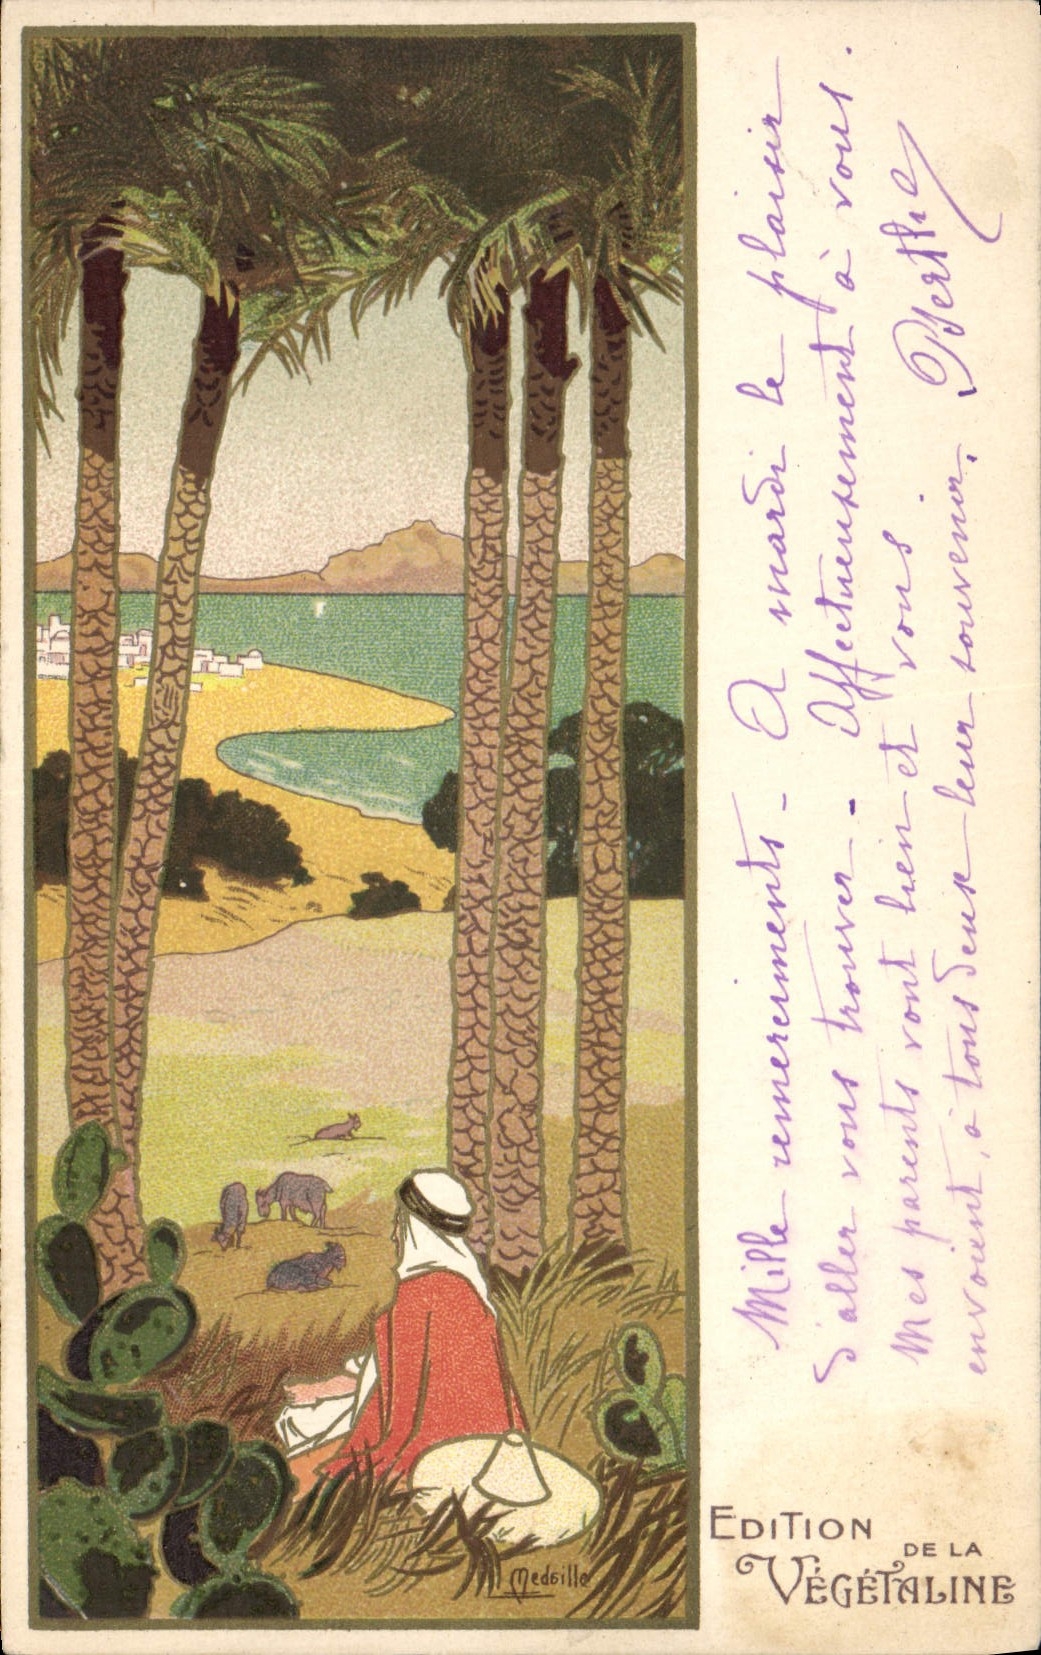 Mille remerciments - A mardi le plaisir
d'aller vous trouver - Affectueusement à vous.
Mes parents vont bien et vous.
envoient, à tous deux leur souvenir. Berthe
EDITION
DE LA
VÉGÉTALINE